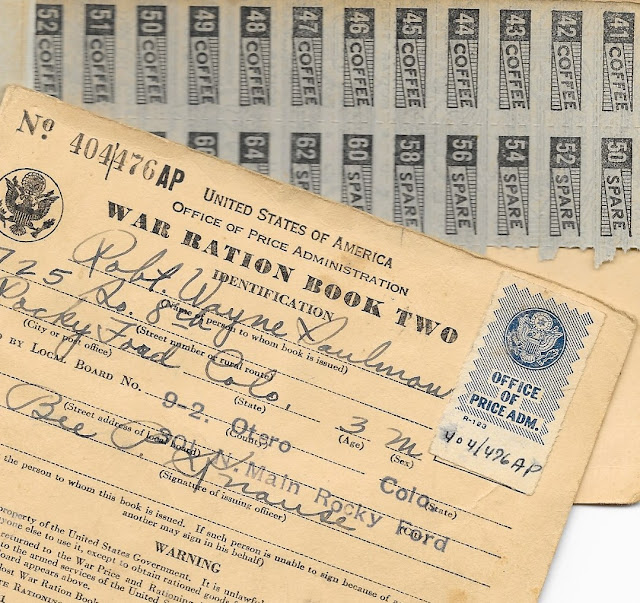 52 51 50 49 48 47 46 45 44 43 42 41
COFFEE COFFEE COFFEE COFFEE COFFEE COFFEE COFFEE COFFEE COFFEE COFFEE COFFEE COFFEE
64 62 60 58 56 54 52 50
SPARE SPARE SPARE SPARE SPARE SPARE SPARE
No 404/476 AP
UNITED STATES OF AMERICA
OFFICE OF PRICE ADMINISTRATION
WAR RATION BOOK TWO
IDENTIFICATION
Robt. Wayne
(Name of person to whom book is issued)
725 So. 8th
(Street number or rural route)
Rocky Ford Colo.
(City or post office) (State)
3 M
(Age) (Sex)
BY LOCAL BOARD NO. 9-2. Otero Colo.
(County) (State)
901 N. Main Rocky Ford
(Street address of local board)
Bee
(Signature of issuing officer)
the person to whom this book is issued. If such person is unable to sign because of
another may sign in his behalf)
WARNING
property of the United States Government. It is unlawful
anyone else to use it, except to obtain rationed goods
returned to the War Price and Rationing
to the armed services of the United
oard appears above.
lost War Ration Book
OFFICE
OF
PRICE ADM.
R-123
404/476 AP